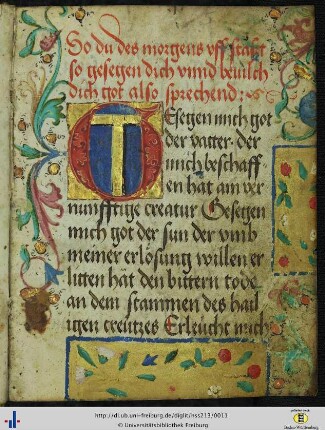 So du des morgens vff stast
so gesegen dich vnnd beuilch
dich got also sprechend :
Gesegen mich got
der vatter · der
mich beschaff
en hat ain ver
nunfftige creatur Gesegen
mich got der sun der vmb
meiner erlosung willen er
litten hat den bittern tode
an dem stammen des hail
igen creutzes Erleucht mich
http://dl.ub.uni-freiburg.de/diglit/hs1213/0011
© Universitätsbibliothek Freiburg
Baden-Württemberg